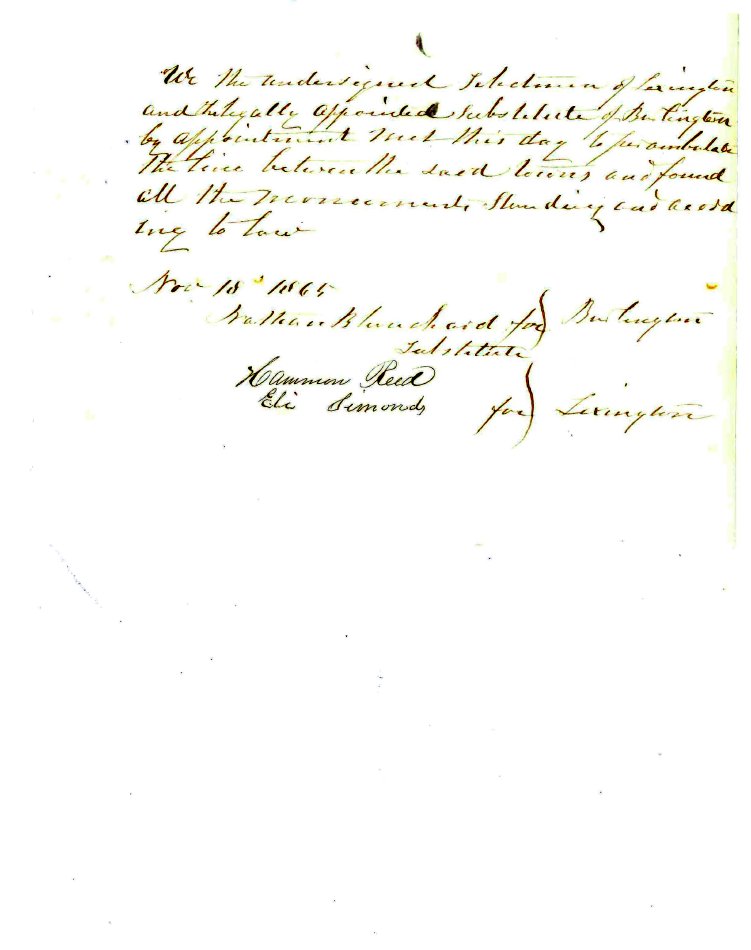 We the undersigned Selectmen of Lexington
and the legally appointed Substitute of Burlington
by appointment met this day to perambulate
the line between the said towns and found
all the monuments standing and accord
ing to law
Nov 18 1865
Nathan Blanchard for } Burlington
Substitute
Hammon Reed
Eli Simonds for } Lexington